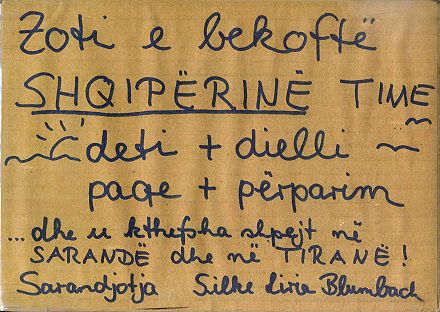 Zoti e bekoftë
SHQIPËRINË TIME
deti + dielli
paqe + përparim
...dhe u kthefsha shpejt në
SARANDË dhe në TIRANË!
Sarandjotja Silke Liria Blumbach